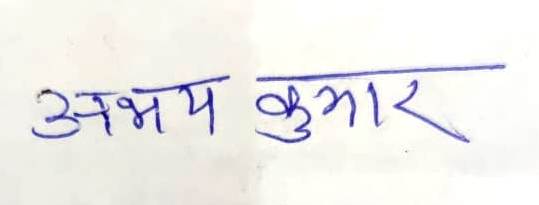 अभय कुमार